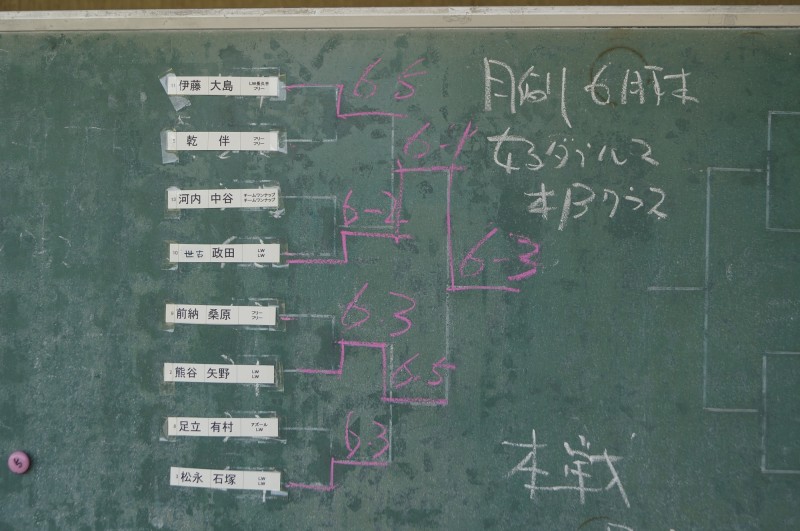 伊藤 大島 フリー
6-5
月例 6月
女子ダブルス
本Bクラス
乾 伴 フリー フリー
6-1
河内 中谷 チームワンナップ チームワンナップ
6-2
政田 LW LW
6-3
前納 桑原 フリー フリー
6-3
熊谷 矢野 LW LW
6-5
足立 有村 LW
6-3
本戦
松永 石塚 LW LW